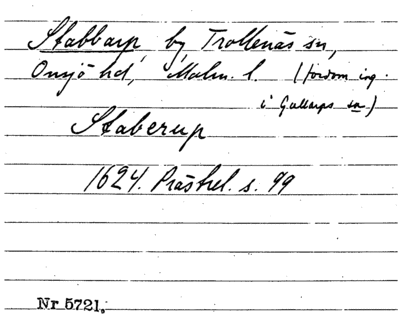 Stabbarp, by, Trollenäs sn,
Onsjö hd, Malm. l. (fordom ing.
i Gullarps sn.)
Staberup
1624. Prästrel. s. 99
Nr 5721.